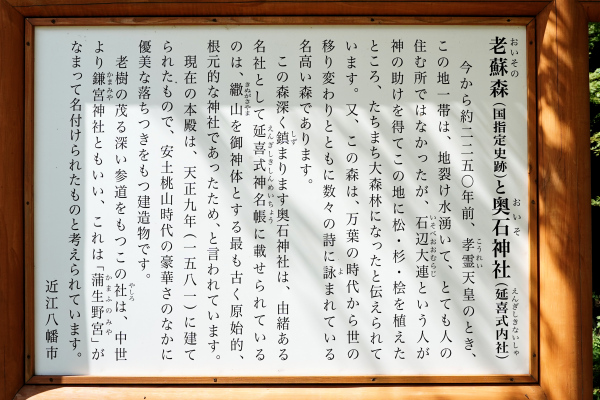 老蘇森（国指定史跡）と奥石神社（延喜式内社）
今から約二二五〇年前、孝霊天皇のとき、
この地一帯は、地裂け水湧いて、とても人の
住む所ではなかったが、石辺大連という人が
神の助けを得てこの地に松・杉・桧を植えた
ところ、たちまち大森林になったと伝えられて
います。又、この森は、万葉の時代から世の
移り変わりとともに数々の詩に詠まれている
名高い森であります。
この森深く鎮まります奥石神社は、由緒ある
名社として延喜式神名帳に載せられている
のは、繖山を御神体とする最も古く原始的、
根元的な神社であったため、と言われています。
現在の本殿は、天正九年（一五八一）に建て
られたもので、安土桃山時代の豪華さのなかに
優美な落ちつきをもつ建造物です。
老樹の茂る深い参道をもつこの社は、中世
より鎌宮神社ともいい、これは「蒲生野宮」が
なまって名付けられたものと考えられています。
近江八幡市